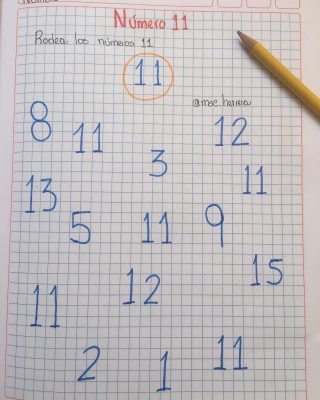 Número 11
Rodea los números 11
11
8
11
12
3
13
11
5
11
9
15
12
11
11
2
1